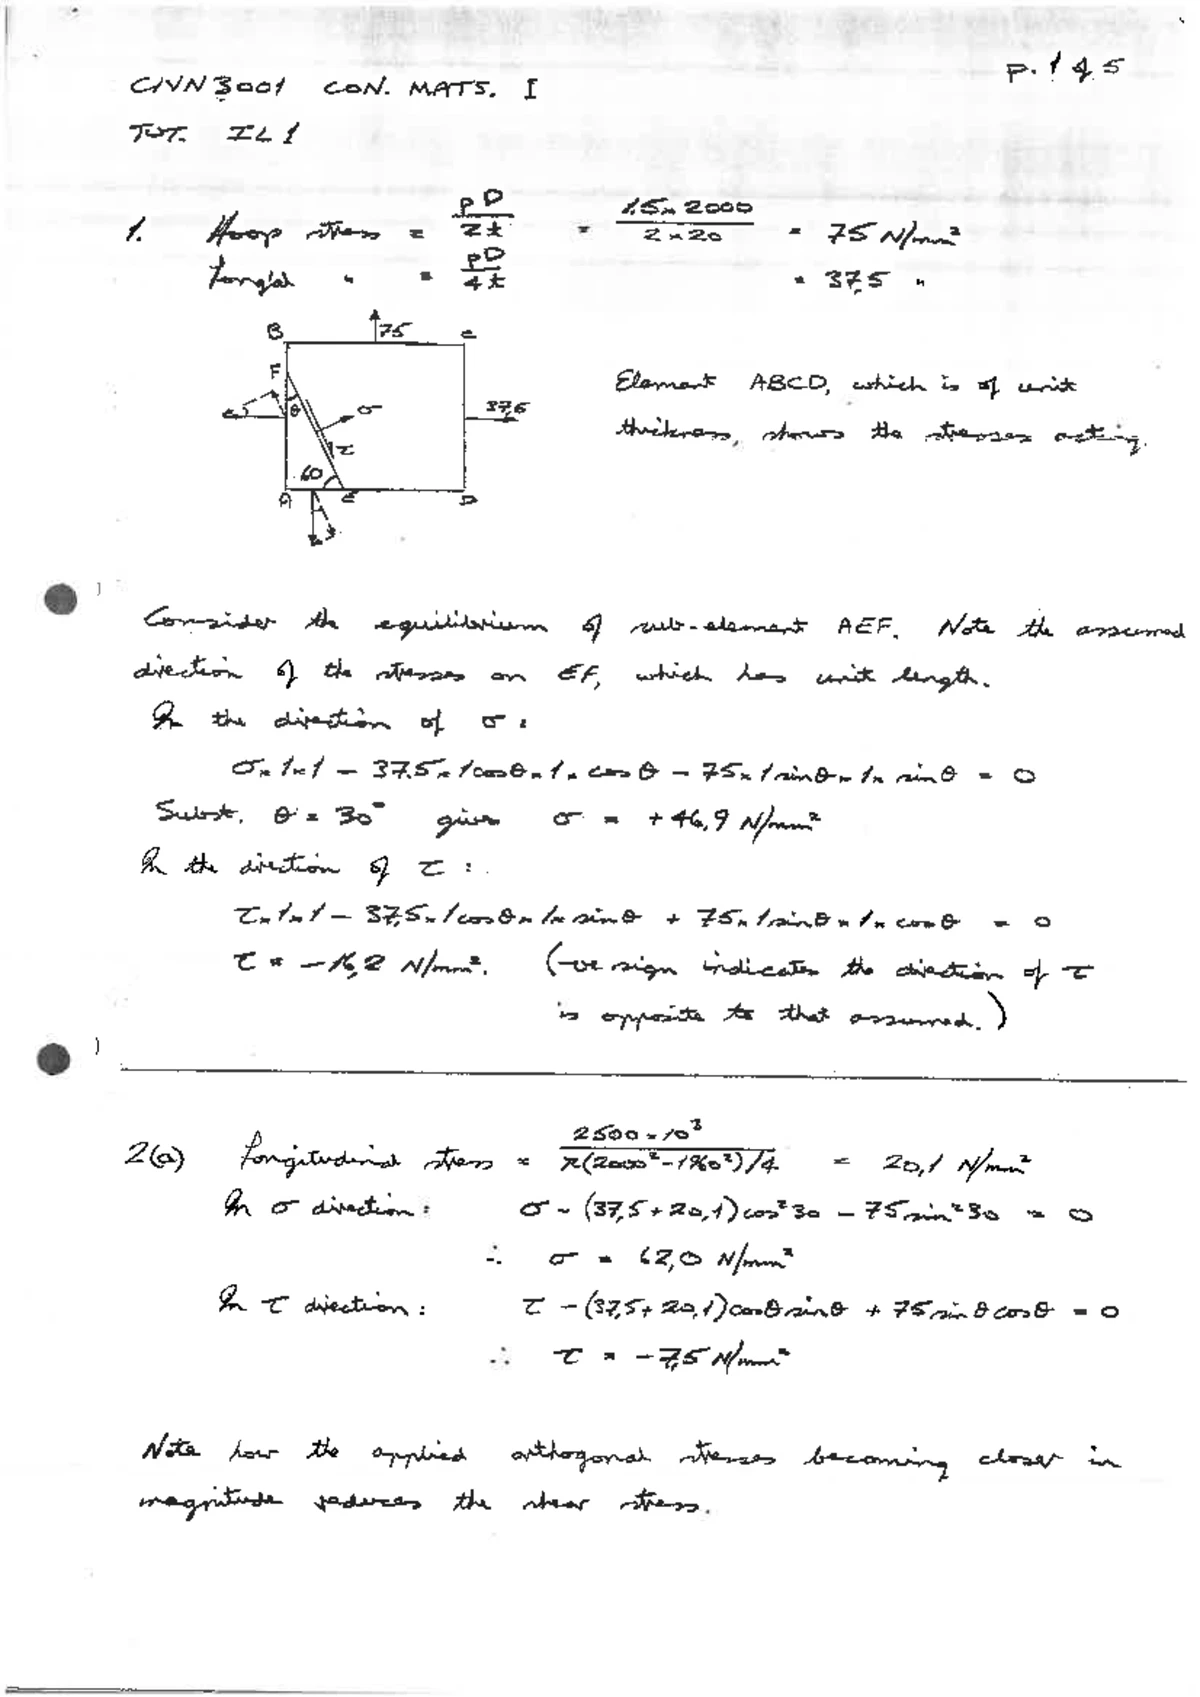 p. 1 of 5
CIVN3001 CON. MATS. I
TUT. IL1
1. Hoop stress = pD/2t = 1.5 × 2000/2 × 20 = 75 N/mm²
Longl " = pD/4t = 37,5 "
B 75 C
F
θ σ 37,5
τ
60
A E D
Element ABCD, which is of unit
thickness, shows the stresses acting.
Consider the equilibrium of sub-element AEF. Note the assumed
direction of the stresses on EF, which has unit length.
In the direction of σ:
σ×1×1 − 37.5×1cosθ×1×cosθ − 75×1sinθ×1×sinθ = 0
Subst. θ = 30° gives σ = +46,9 N/mm²
In the direction of τ:
τ×1×1 − 37,5×1cosθ×1×sinθ + 75×1sinθ×1×cosθ = 0
τ = −16,2 N/mm². (−ve sign indicates the direction of τ
is opposite to that assumed.)
2(a) Longitudinal stress = 2500×10³/π(2000²−1960²)/4 = 20,1 N/mm²
In σ direction: σ − (37,5+20,1)cos²30 − 75sin²30 = 0
∴ σ = 62,0 N/mm²
In τ direction: τ − (37,5+20,1)cosθsinθ + 75sinθcosθ = 0
∴ τ = −7,5 N/mm²
Note how the applied orthogonal stresses becoming closer in
magnitude reduces the shear stress.